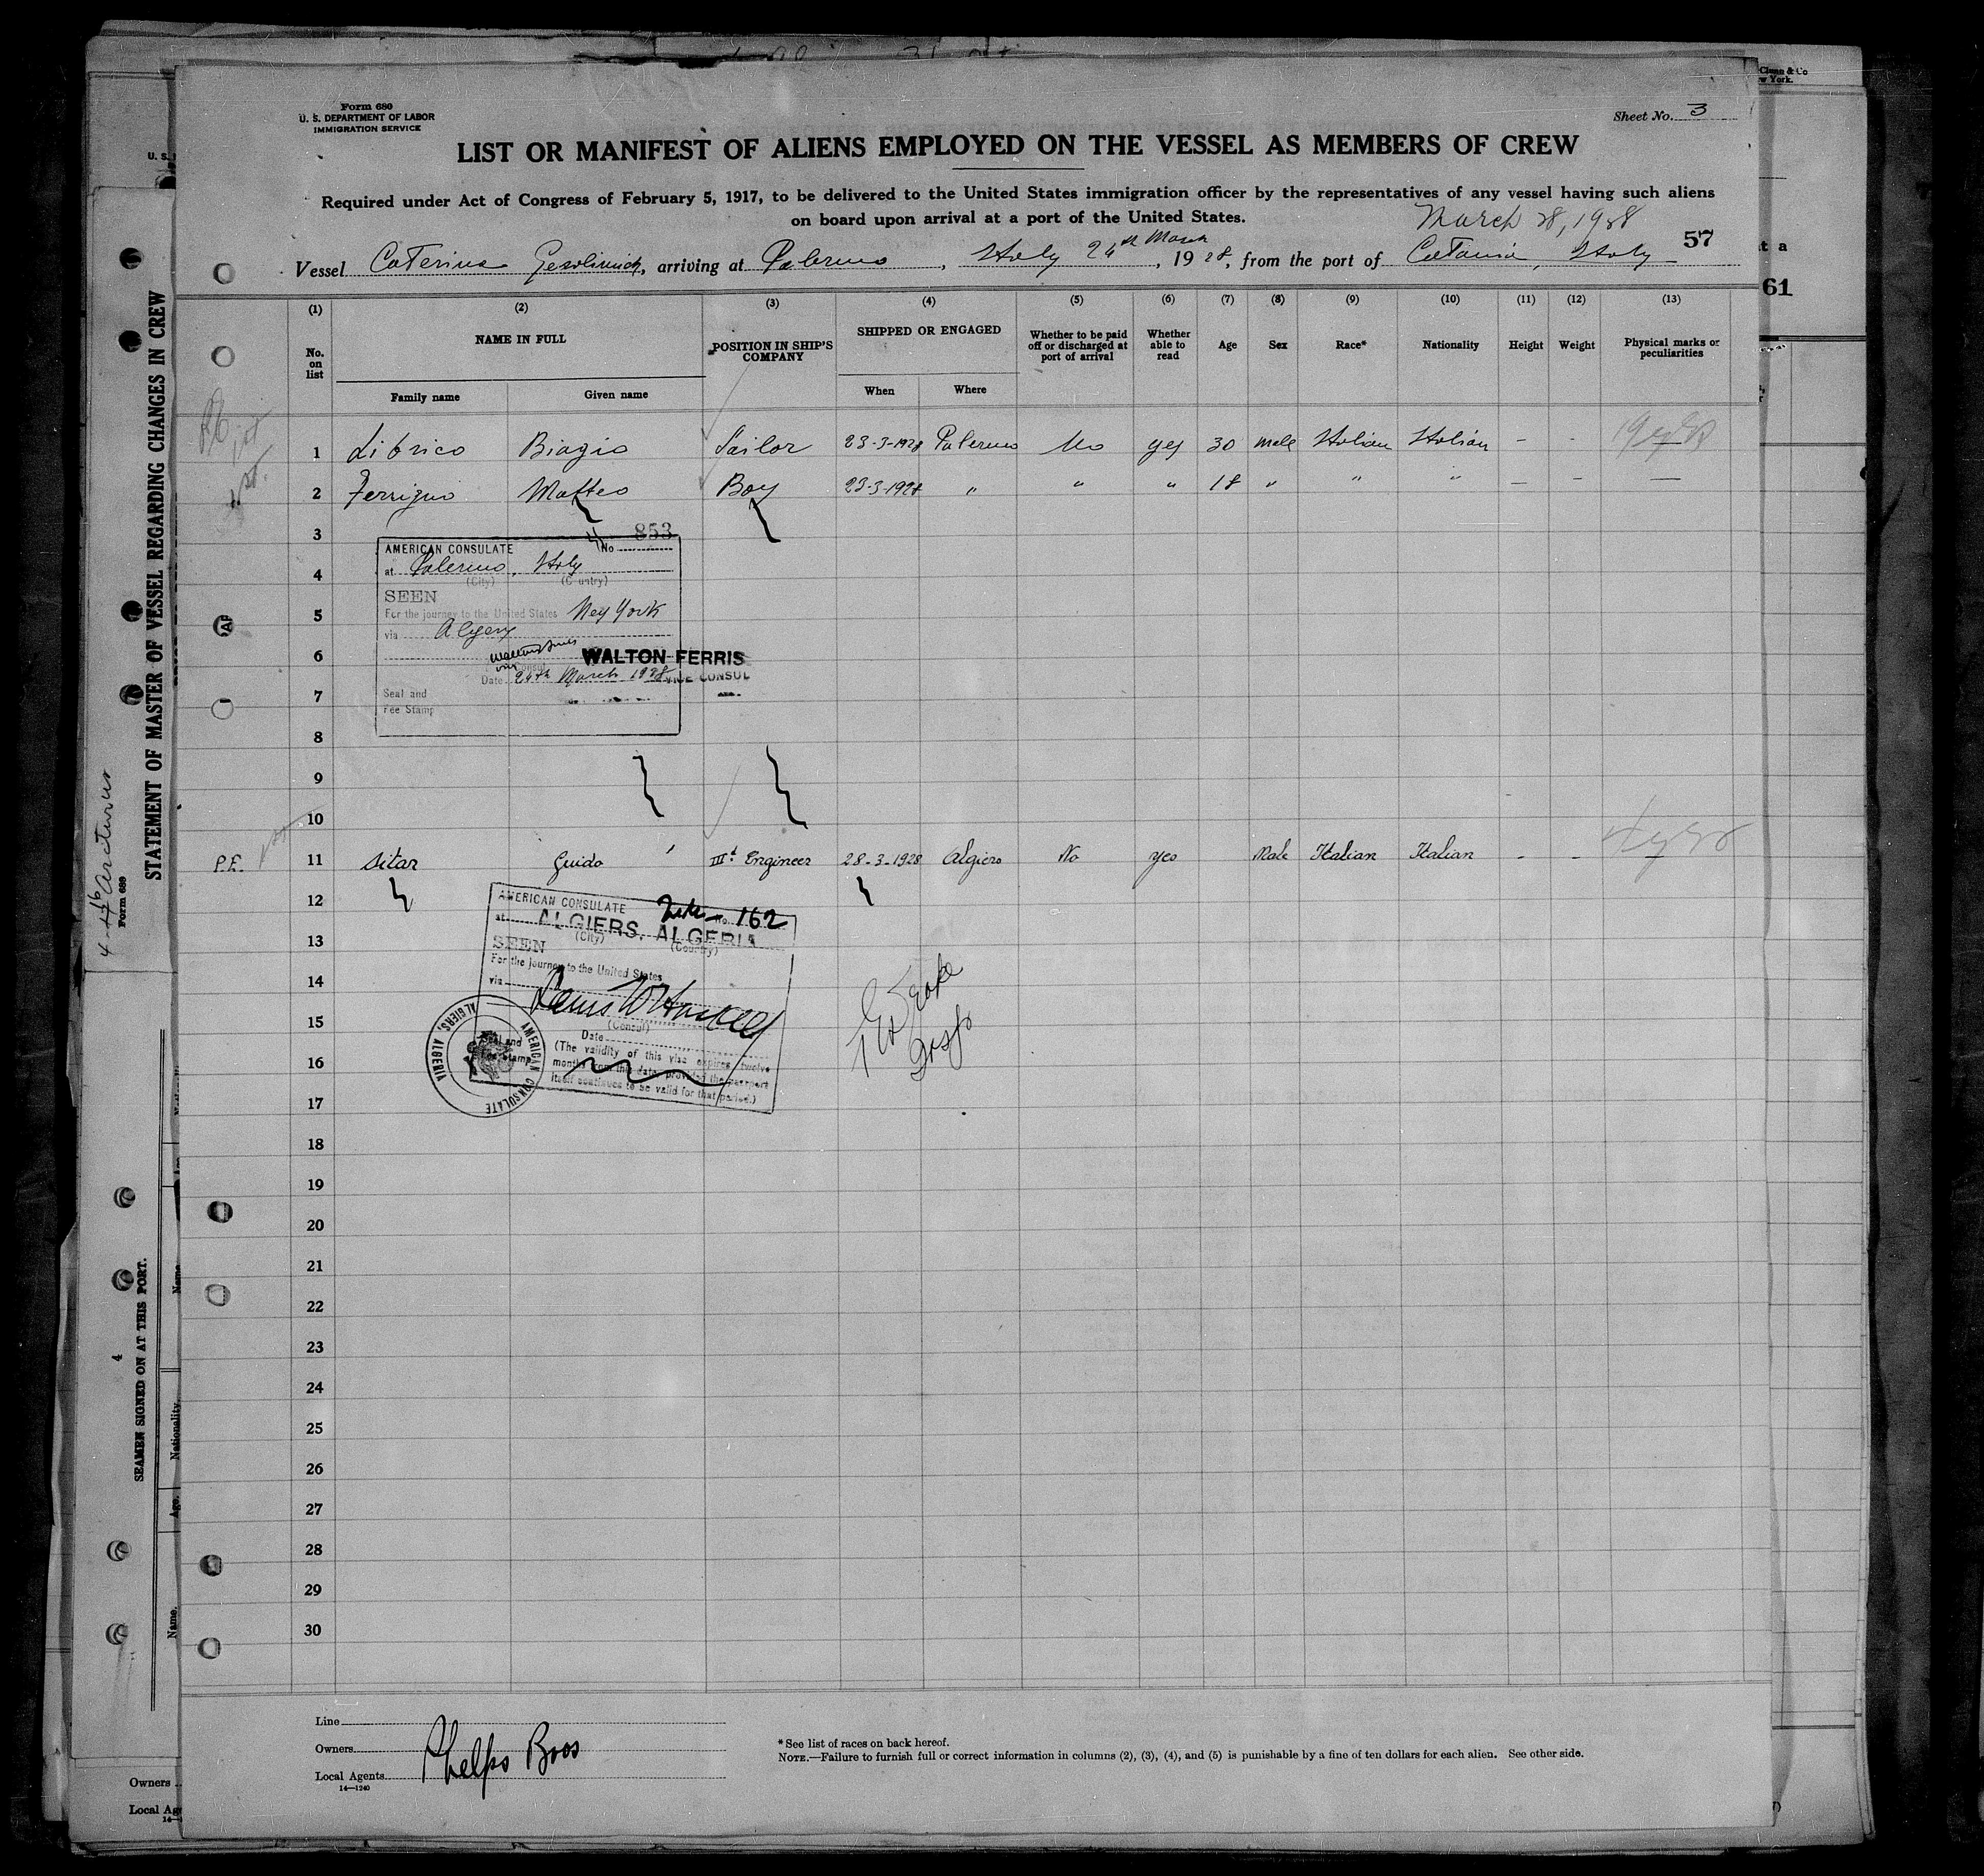 Form 680
U. S. DEPARTMENT OF LABOR
IMMIGRATION SERVICE
Sheet No. 3
LIST OR MANIFEST OF ALIENS EMPLOYED ON THE VESSEL AS MEMBERS OF CREW
Required under Act of Congress of February 5, 1917, to be delivered to the United States immigration officer by the representatives of any vessel having such aliens
on board upon arrival at a port of the United States.
March 28, 1928
57
Vessel Caterina Gerolimich, arriving at Palermo, Italy 24th March, 1928, from the port of Catania, Italy
(1) (2) (3) (4) (5) (6) (7) (8) (9) (10) (11) (12) (13)
No. on list
NAME IN FULL
Family name
Given name
POSITION IN SHIP'S COMPANY
SHIPPED OR ENGAGED
When
Where
Whether to be paid off or discharged at port of arrival
Whether able to read
Age
Sex
Race*
Nationality
Height
Weight
Physical marks or peculiarities
1 Librico Biagio Sailor 23-3-1928 Palermo No yes 30 Male Italian Italian - -
2 Ferrigno Matteo Boy 23-3-1928 " " " 18 " " " — - —
3
4
5
6
7
8
9
10
P.E. 11 Sitar Guido IIId Engineer 28-3-1928 Algiers No yes Male Italian Italian - -
12
13
14
15
16
17
18
19
20
21
22
23
24
25
26
27
28
29
30
AMERICAN CONSULATE
No 853
at Palermo, Italy
(City) (Country)
SEEN
For the journey to the United States New York
via
WALTON FERRIS
VICE CONSUL
Date 24th March 1928
Seal and
Fee Stamp
AMERICAN CONSULATE
No. 162
at ALGIERS, ALGERIA
(City) (Country)
SEEN
For the journey to the United States
via
(Consul)
Date
(The validity of this visa expires twelve
months from this date, provided the passport
itself continues to be valid for that period.)
Seal and
Fee Stamp
AMERICAN CONSULATE
ALGIERS, ALGERIA
Line
Owners
Local Agents
Phelps Bros
14—1240
*See list of races on back hereof.
NOTE.—Failure to furnish full or correct information in columns (2), (3), (4), and (5) is punishable by a fine of ten dollars for each alien. See other side.
STATEMENT OF MASTER OF VESSEL REGARDING CHANGES IN CREW
Form 689
Arcturus
SEAMEN SIGNED ON AT THIS PORT.
4
Name.
Nationality.
Age.
Name.
Owners
Local Age
61